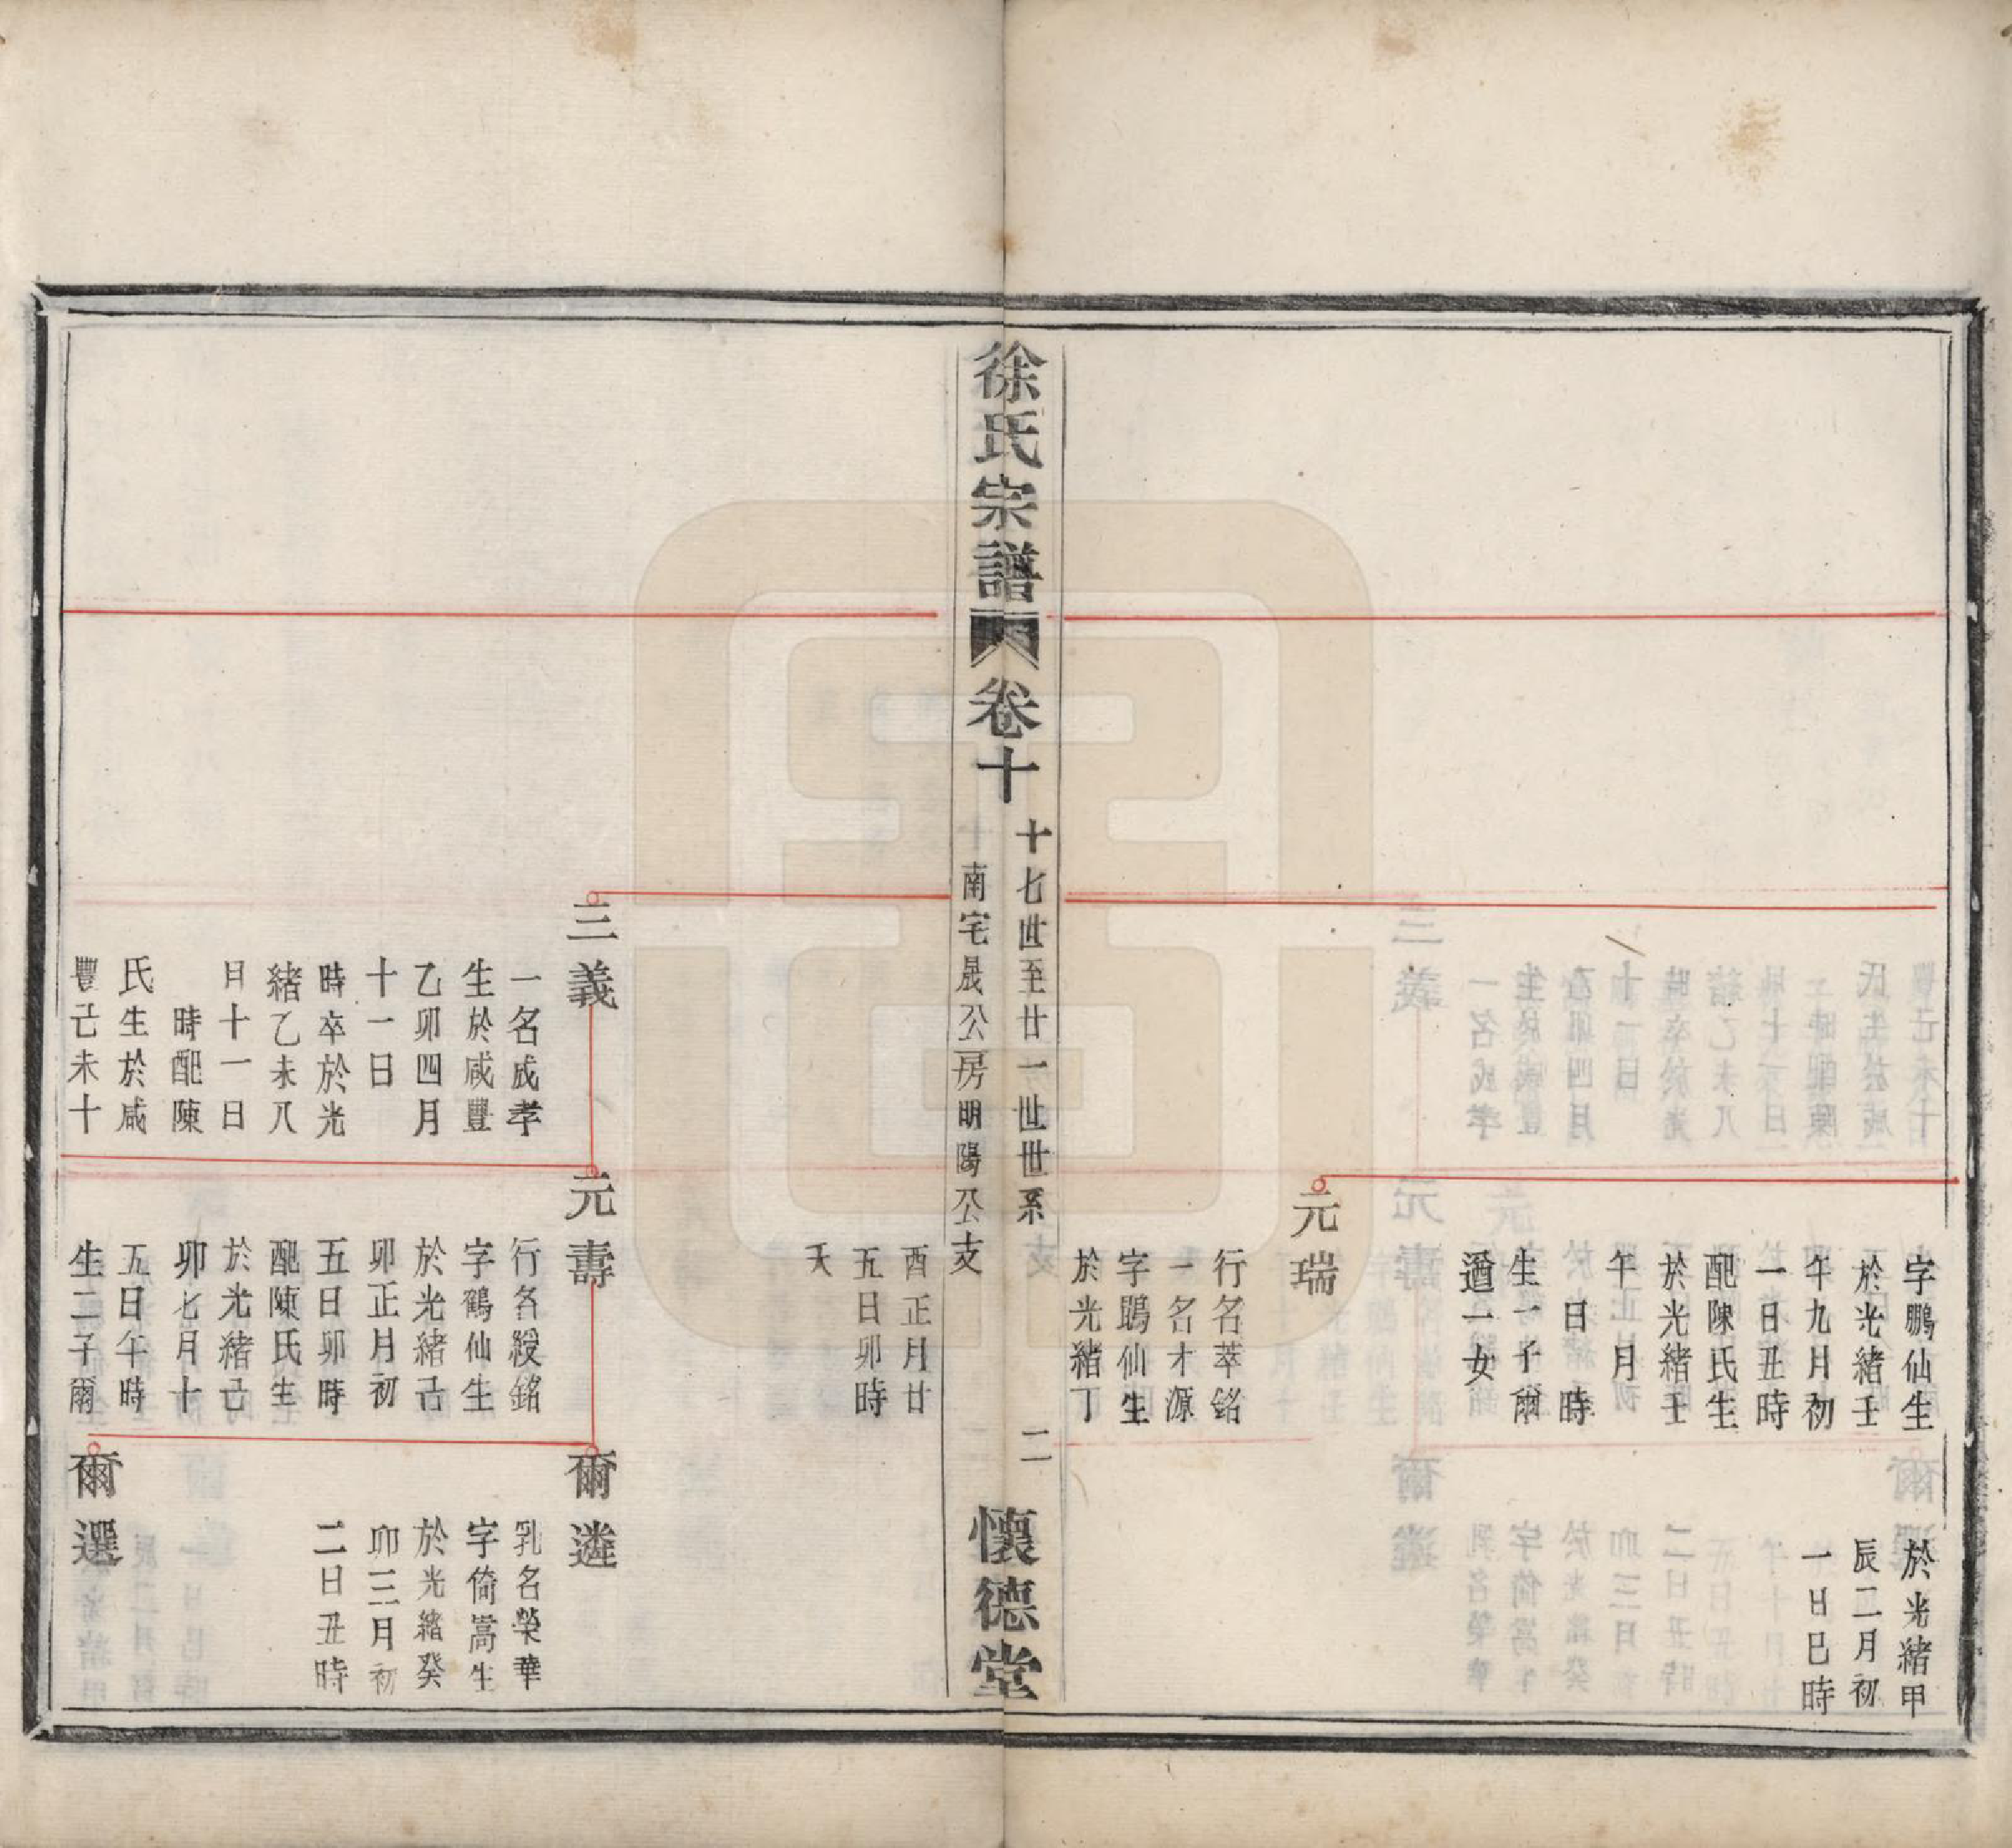 字鵬仙生
於光緒壬
午九月初
一日丑時
配陳氏生
於光緒壬
午正月
日時
生一子爾
遒一女
於光緒甲
辰二月初
一日巳時
元瑞
行名萃銘
一名才源
字鵾仙生
於光緒丁
徐氏宗譜
卷十
十七世至廿一世世系
南宅晟公房明陽公支
二
懷德堂
酉正月廿
五日卯時
夭
三義
一名成孝
生於咸豐
乙卯四月
十一日
時卒於光
緒乙未八
月十一日
時配陳
氏生於咸
豐己未十
元壽
行名綬銘
字鶴仙生
於光緒己
卯正月初
五日卯時
配陳氏生
於光緒己
卯七月十
五日午時
生二子爾
爾遴
乳名榮華
字倚嵩生
於光緒癸
卯三月初
二日丑時
爾選